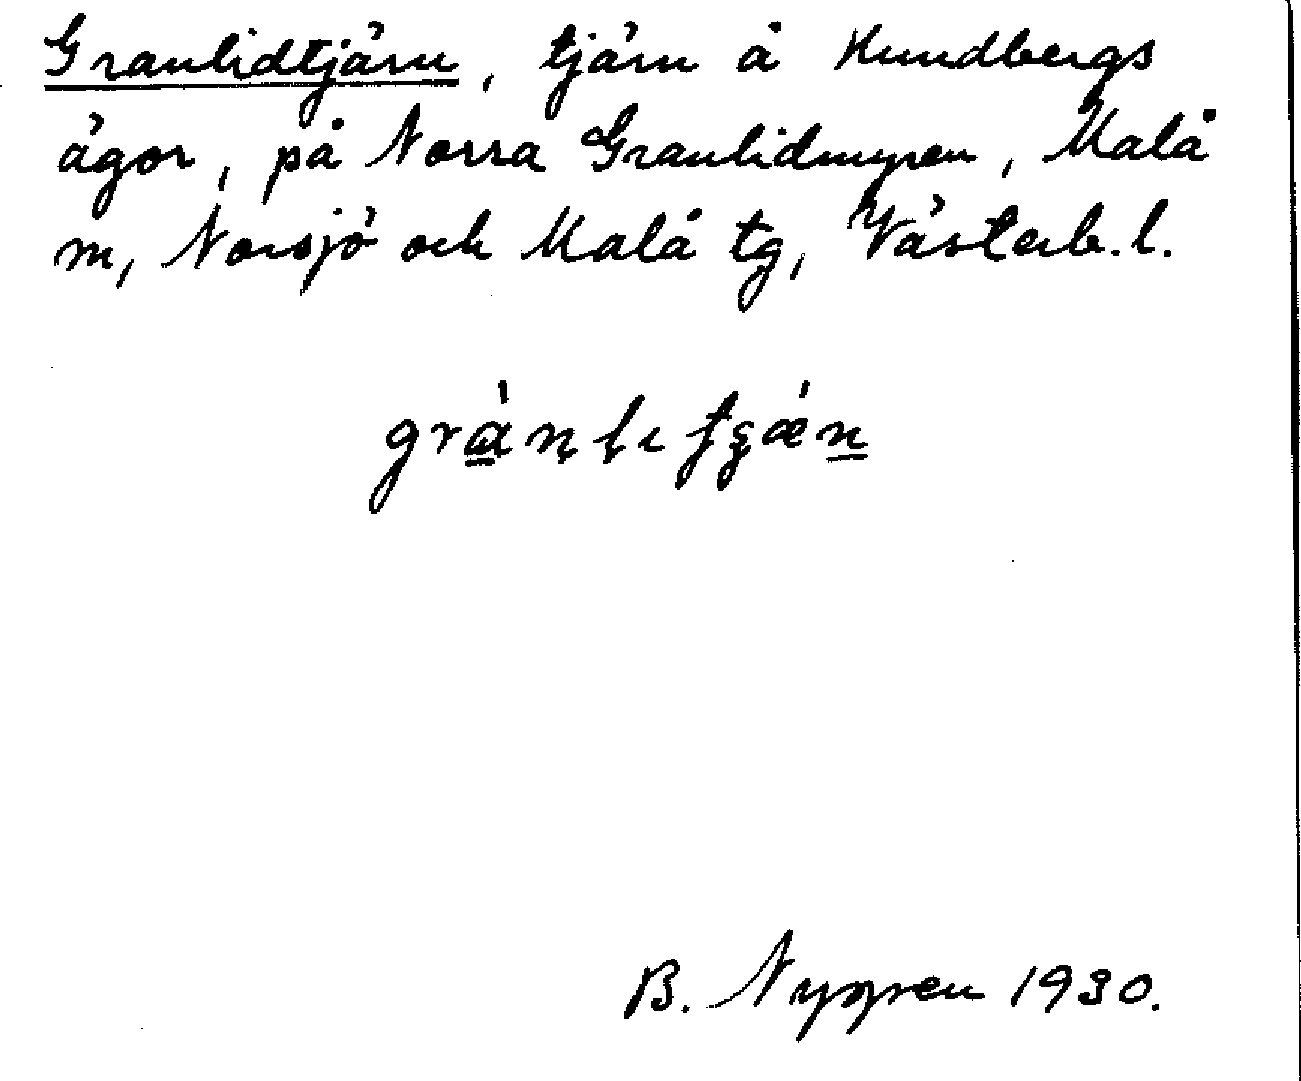 Granlidtjärn, tjärn å Hundbergs
ägor, på Norra Granlidmyren, Malå
m, Norsjö och Malå tg, Västerb. l.
B. Nygren 1930.